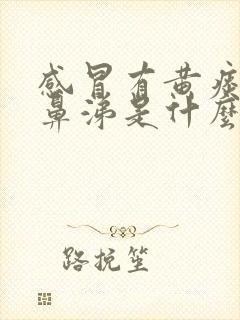 感冒有黄痰
鼻涕是什麽
路挽笙